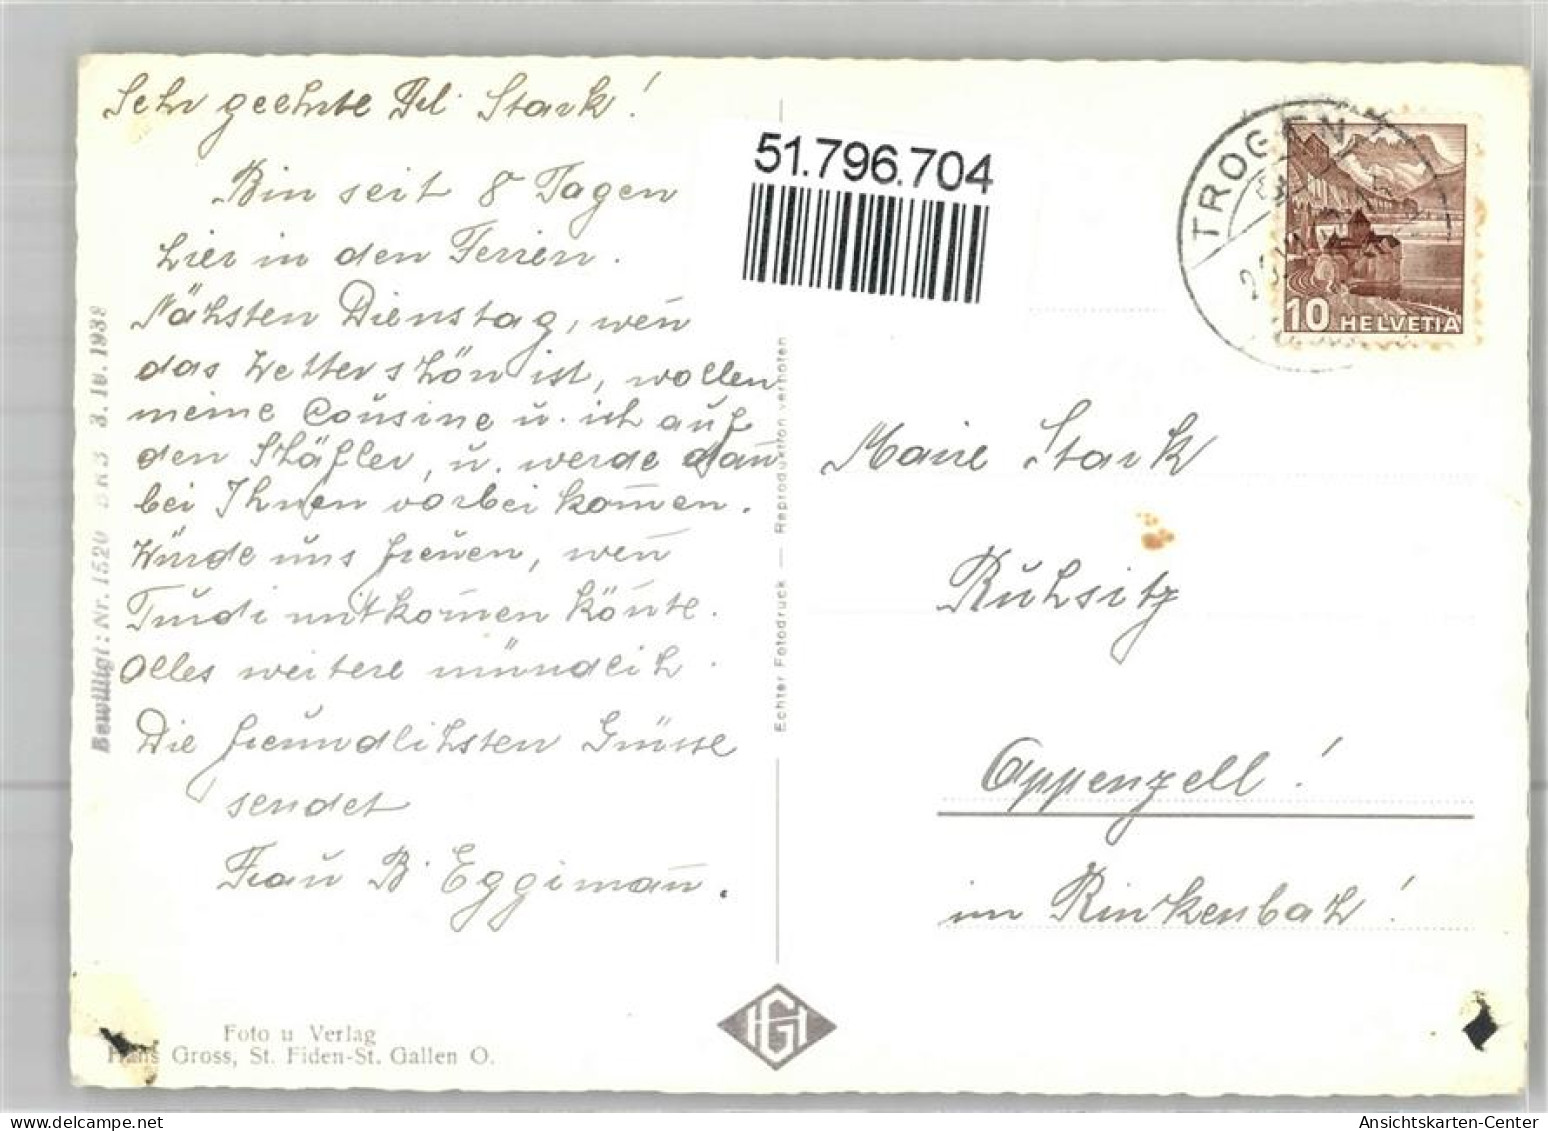 Sehr geehrte Frl. Stark!
Bin seit 8 Tagen
hier in den Ferien.
Nächsten Dienstag, weñ
das Wetter schön ist, wollen
meine Cousine u. ich auf
den Schäfler, u. werde dañ
bei Ihnen vorbei kom̄en.
Würde uns freuen, weñ
Trudi mitkom̄en kön̄te.
Alles weitere mündlich.
Die freundlichsten Grüsse
sendet
Frau B. Eggimañ.
Bewilligt: Nr. 1520 BRB 3. 10. 1939
Foto u Verlag
Hans Gross, St. Fiden-St. Gallen O.
Echter Fotodruck — Reproduktion verboten
HG
51.796.704
TROGEN
10 HELVETIA
Marie Stark
Ruhsitz
Appenzell!
im Rinkenbach!
Ansichtskarten-Center